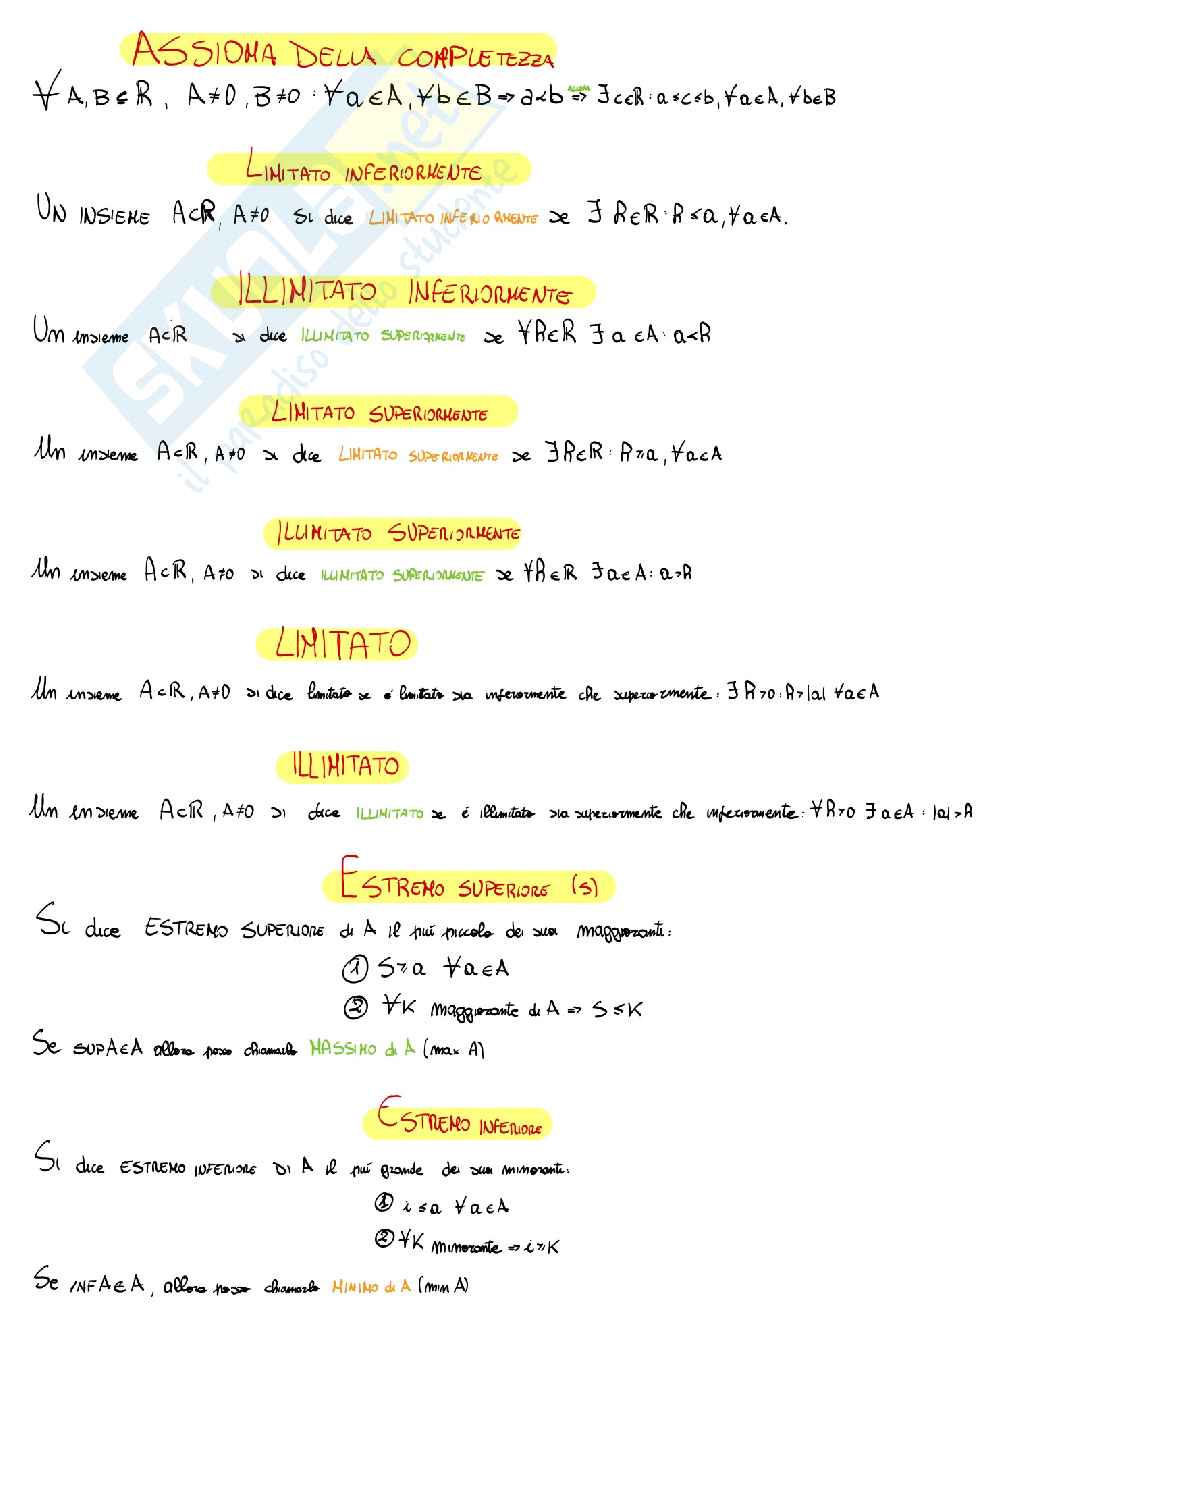 ASSIOMA DELLA COMPLETEZZA
∀ A, B ⊂ R, A≠0, B≠0 : ∀a∈A, ∀b∈B ⇒ a<b ⇒ ∃ c∈R : a≤c≤b, ∀a∈A, ∀b∈B
LIMITATO INFERIORMENTE
UN INSIEME A⊂R, A≠0 SI dice LIMITATO INFERIORMENTE se ∃ R∈R : R≤a, ∀a∈A.
ILLIMITATO INFERIORMENTE
Un insieme A⊂R si dice ILLIMITATO SUPERIORMENTE se ∀R∈R ∃ a∈A : a<R
LIMITATO SUPERIORMENTE
Un insieme A⊂R, A≠0 si dice LIMITATO SUPERIORMENTE se ∃R∈R : R≥a, ∀a∈A
ILLIMITATO SUPERIORMENTE
Un insieme A⊂R, A≠0 si dice ILLIMITATO SUPERIORMENTE se ∀R∈R ∃a∈A : a>R
LIMITATO
Un insieme A⊂R, A≠0 si dice limitato se è limitato sia inferiormente che superiormente : ∃R>0 : R>|a| ∀a∈A
ILLIMITATO
Un insieme A⊂R, A≠0 si dice ILLIMITATO se è illimitato sia superiormente che inferiormente : ∀R>0 ∃a∈A : |a|>R
ESTREMO SUPERIORE (S)
Si dice ESTREMO SUPERIORE di A il più piccolo dei suoi maggioranti:
① S≥a ∀a∈A
② ∀K maggiorante di A ⇒ S≤K
Se SUPA∈A allora posso chiamarlo MASSIMO di A (max A)
ESTREMO INFERIORE
Si dice ESTREMO INFERIORE DI A il più grande dei suoi minoranti:
① i≤a ∀a∈A
② ∀K minorante ⇒ i≥K
Se INFA∈A, allora posso chiamarlo MINIMO di A (min A)
SKUOLA.net
il paradiso dello studente